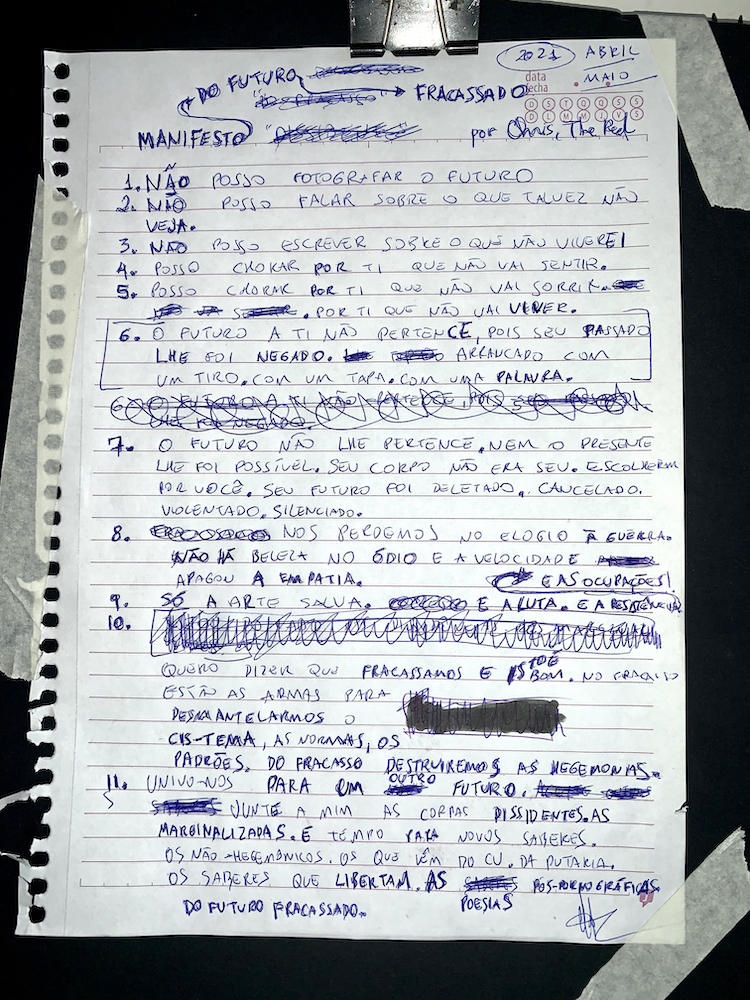 2021 ABRIL
MAIO
data
fecha
D S T Q Q S S
D L M M J V S
DO FUTURO
FRACASSADO
MANIFESTO
por Chris, The Red
1. NÃO POSSO FOTOGRAFAR O FUTURO
2. NÃO POSSO FALAR SOBRE O QUE TALVEZ NÃO
VEJA.
3. NÃO POSSO ESCREVER SOBRE O QUE NÃO VIVEREI
4. POSSO CHORAR POR TI QUE NÃO VAI SENTIR.
5. POSSO CHORAR POR TI QUE NÃO VAI SORRIR.
. POR TI QUE NÃO VAI VIVER.
6. O FUTURO A TI NÃO PERTENCE, POIS SEU PASSADO
LHE FOI NEGADO. ARRANCADO COM
UM TIRO. COM UM TAPA. COM UMA PALAVRA.
6. O FUTURO A TI NÃO PERTENCE, POIS SEU PASSADO
LHE FOI NEGADO.
7. O FUTURO NÃO LHE PERTENCE, NEM O PRESENTE
LHE FOI POSSÍVEL. SEU CORPO NÃO ERA SEU. ESCOLHERAM
POR VOCÊ. SEU FUTURO FOI DELETADO. CANCELADO.
VIOLENTADO. SILENCIADO.
8. NOS PERDEMOS NO ELOGIO À GUERRA.
NÃO HÁ BELEZA NO ÓDIO E A VELOCIDADE
APAGOU A EMPATIA.
E AS OCUPAÇÕES!
9. SÓ A ARTE SALVA. E A LUTA. E A RESISTÊNCIA
10.
QUERO DIZER QUE FRACASSAMOS E ISTO É BOM. NO FRACASSO
ESTÃO AS ARMAS PARA
DESMANTELARMOS O
CIS-TEMA, AS NORMAS, OS
PADRÕES. DO FRACASSO DESTRUIREMOS AS HEGEMONIAS.
11. UNIVO-NOS PARA UM OUTRO FUTURO.
S JUNTE A MIM AS CORPAS DISSIDENTES. AS
MARGINALIZADAS. É TEMPO PARA NOVOS SABERES.
OS NÃO-HEGEMÔNICOS. OS QUE VÊM DO CU. DA PUTARIA.
OS SABERES QUE LIBERTAM. AS POESIAS PÓS-PORNOGRÁFICAS
DO FUTURO FRACASSADO.